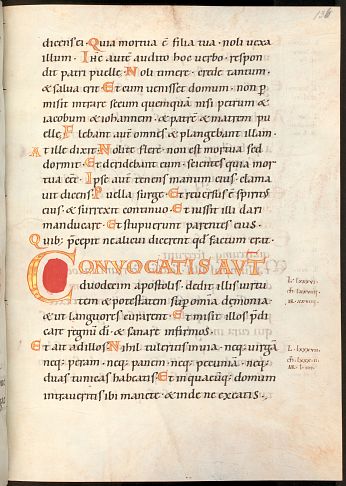 136
dicens ei. Quia mortua ē filia tua. noli vexa
illum. Ihc autē audito hoc verbo. respon
dit patri puellę. Noli timere. crede tantum.
& salva erit. Et cum venisset domum. non p
misit intrare secum quemquā nisi petrum &
iacobum & iohannem. & patrē & matrem pu
ellę. Flebant autē omnes & plangebant illam.
At ille dixit. Nolite flere. non est mortua sed
dormit. Et deridebant eum. scientes quia mor
tua eēt. Ipse autē tenens manum eius. clama
vit dicens. Puella surge. Et reversus ē spiritus
eius. & surrexit continuo. Et iussit illi dari
manducare. Et stupuerunt parentes eius.
Quib; p̄cepit ne alicui dicerent qđ factum erat.
CONVOCATIS AVT̄
duodecim apostolis. dedit illis virtu
tem & potestatem sup omnia dęmonia.
& ut languores curarent. Et misit illos p̄di
care regnū dī. & sanare infirmos.
Et ait ad illos. Nihil tuleritis in via. neq; virgā
neq; peram. neq; panem. neq; pecuniā. neq;
duas tunicas habeatis. Et in quacūq; domum
intraveritis ibi manete. & inde ne exeatis.